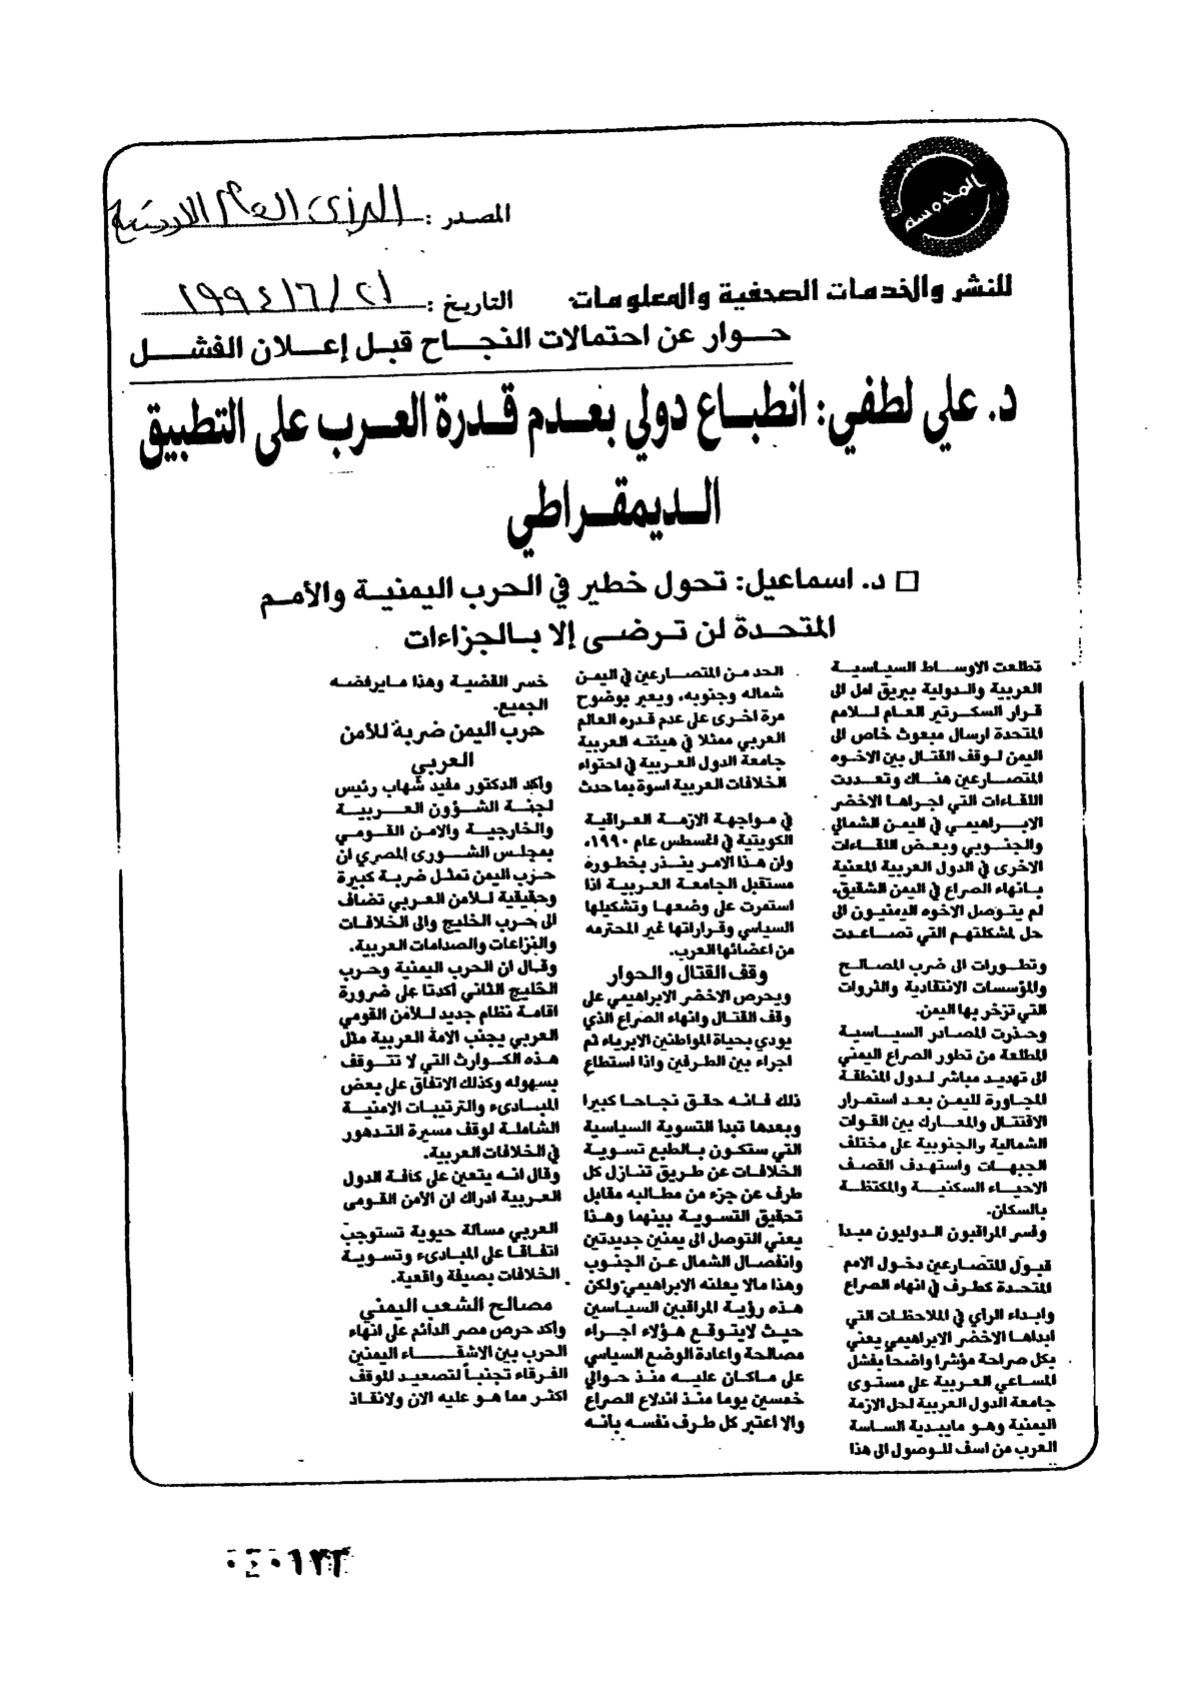 المحروسة
للنشر والخدمات الصحفية والمعلومات
المصدر : الرأى العام الاردنية
التاريخ : ٢١ / ٦ / ١٩٩٤
حوار عن احتمالات النجاح قبل إعلان الفشل
د. علي لطفي: انطباع دولي بعدم قدرة العرب على التطبيق
الديمقراطي
□ د. اسماعيل: تحول خطير في الحرب اليمنية والأمم
المتحدة لن ترضى إلا بالجزاءات
تطلعت الاوساط السياسية
العربية والدولية ببريق امل الى
قرار السكرتير العام للامم
المتحدة ارسال مبعوث خاص الى
اليمن لوقف القتال بين الاخوه
المتصارعين هناك وتعددت
اللقاءات التي اجراها الاخضر
الابراهيمي في اليمن الشمالي
والجنوبي وبعض اللقاءات
الاخرى في الدول العربية المعنية
بانهاء الصراع في اليمن الشقيق.
لم يتوصل الاخوه اليمنيون الى
حل لمشكلتهم التي تصاعدت
وتطورات الى ضرب المصالح
والمؤسسات الانتقادية والثروات
التي تزخر بها اليمن.
وحذرت المصادر السياسية
المطلعة من تطور الصراع اليمني
الى تهديد مباشر لدول المنطقة
المجاورة لليمن بعد استمرار
الاقتتال والمعارك بين القوات
الشمالية والجنوبية على مختلف
الجبهات واستهدف القصف
الاحياء السكنية والمكتظة
بالسكان.
وفسر المراقبون الدوليون مبدأ
قبول المتصارعين دخول الامم
المتحدة كطرف في انهاء الصراع
وابداء الرأي في الملاحظات التي
ابداها الاخضر الابراهيمي يعني
بكل صراحة مؤشرا واضحا بفشل
المساعي العربية على مستوى
جامعة الدول العربية لحل الازمة
اليمنية وهو مايبدية الساسة
العرب من اسف للوصول الى هذا
الحد من المتصارعين في اليمن
شماله وجنوبه، ويعبر بوضوح
مرة اخرى على عدم قدره العالم
العربي ممثلا في هيئته العربية
جامعة الدول العربية في احتواء
الخلافات العربية اسوة بما حدث
في مواجهة الازمة العراقية
الكويتية في اغسطس عام ١٩٩٠،
وان هذا الامر ينذر بخطوره
مستقبل الجامعة العربية اذا
استمرت على وضعها وتشكيلها
السياسي وقراراتها غير المحترمه
من اعضائها العرب.
وقف القتال والحوار
ويحرص الاخضر الابراهيمي على
وقف القتال وانهاء الصراع الذي
يودي بحياة المواطنين الابرياء ثم
اجراء بين الطرفين واذا استطاع
ذلك فانه حقق نجاحا كبيرا
وبعدها تبدا التسوية السياسية
التي ستكون بالطبع تسوية
الخلافات عن طريق تنازل كل
طرف عن جزء من مطالبه مقابل
تحقيق التسوية بينهما وهذا
يعني التوصل الى يمنين جديدتين
وانفصال الشمال عن الجنوب
وهذا مالا يعلنه الابراهيمي ولكن
هذه رؤية المراقبين السياسين
حيث لايتوقع هؤلاء اجراء
مصالحة واعادة الوضع السياسي
على ماكان عليه منذ حوالي
خمسين يوما منذ اندلاع الصراع
والا اعتبر كل طرف نفسه بانه
خسر القضية وهذا مايرفضه
الجميع.
حرب اليمن ضربة للأمن
العربي
وأكد الدكتور مفيد شهاب رئيس
لجنة الشؤون العربية
والخارجية والامن القومي
بمجلس الشورى المصري ان
حزب اليمن تمثل ضربة كبيرة
وحقيقية للأمن العربي تضاف
الى حرب الخليج والى الخلافات
والنزاعات والصدامات العربية.
وقال ان الحرب اليمنية وحرب
الخليج الثاني أكدتا على ضرورة
اقامة نظام جديد للأمن القومي
العربي يجنب الامة العربية مثل
هذه الكوارث التي لا تتوقف
بسهوله وكذلك الاتفاق على بعض
المبادىء والترتيبات الامنية
الشاملة لوقف مسيرة التدهور
في الخلافات العربية.
وقال انه يتعين على كافة الدول
العربية ادراك ان الأمن القومى
العربي مسالة حيوية تستوجب
اتفاقا على المبادىء وتسوية
الخلافات بصيغة واقعية.
مصالح الشعب اليمني
وأكد حرص مصر الدائم على انهاء
الحرب بين الاشقاء اليمنين
الفرقاء تجنباً لتصعيد للوقف
اكثر مما هو عليه الان ولانقاذ
٠٤٠١٢٣